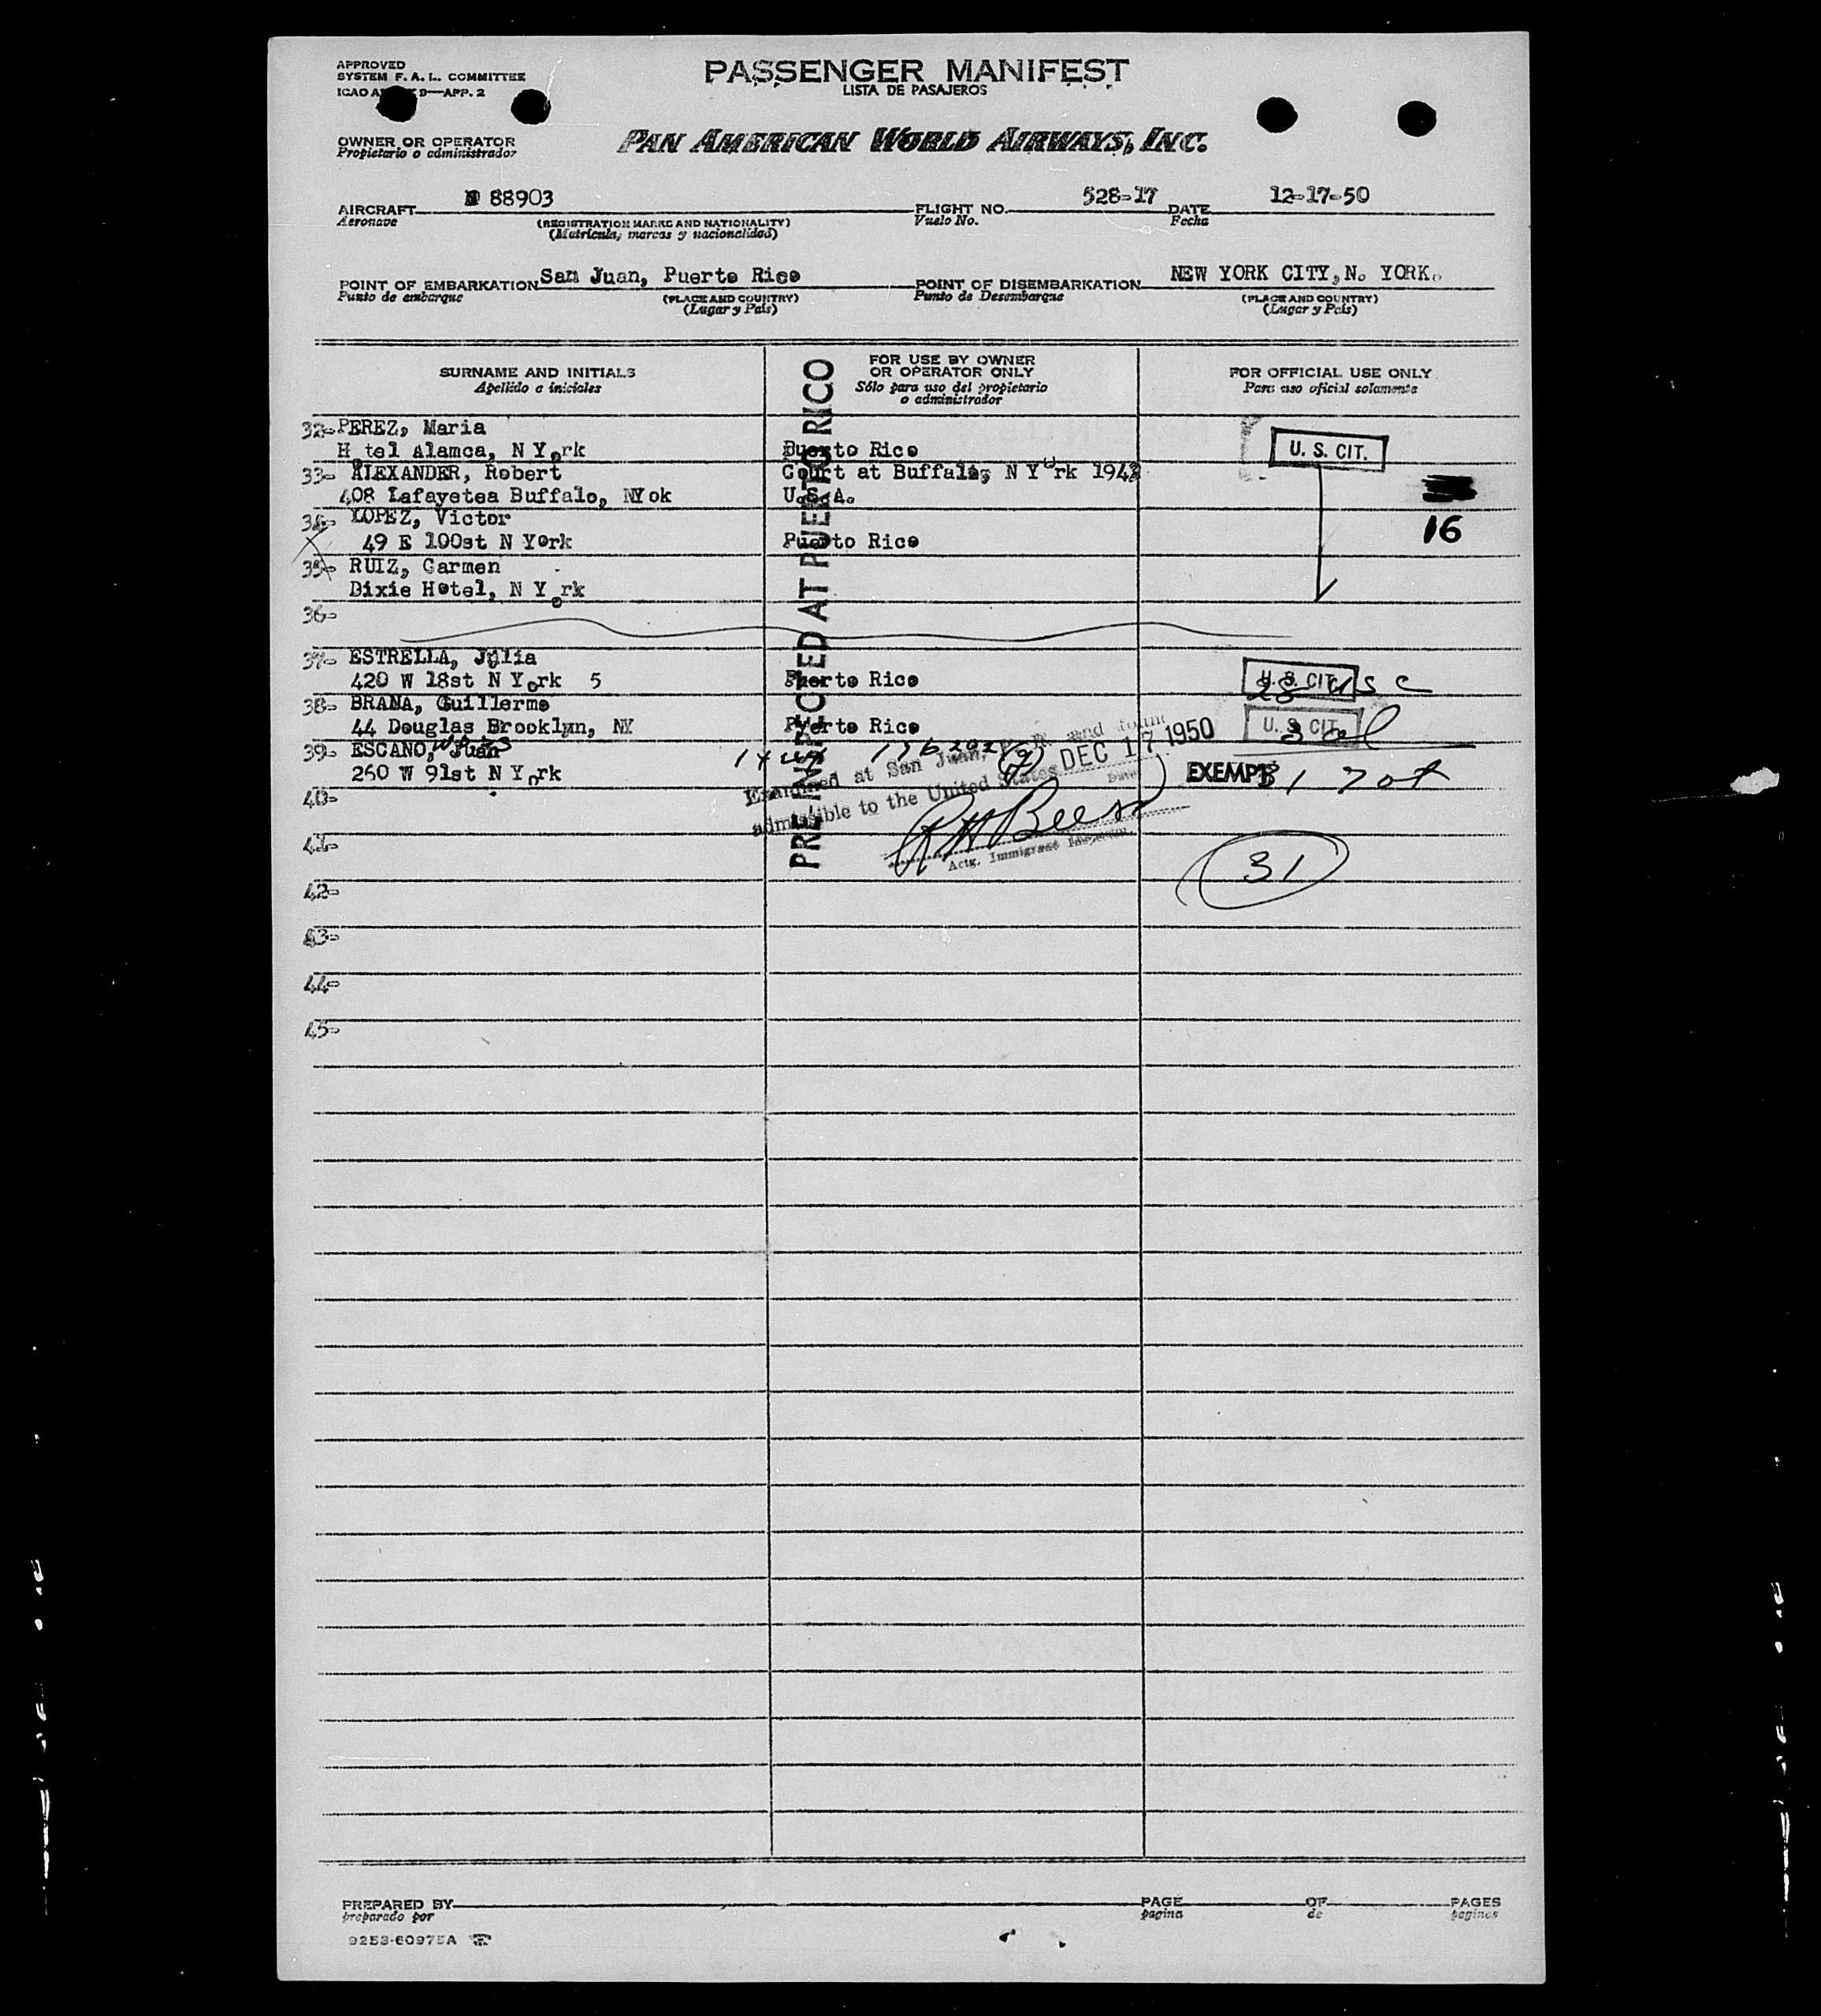 APPROVED
SYSTEM F. A. L. COMMITTEE
ICAO 9—APP. 2
PASSENGER MANIFEST
LISTA DE PASAJEROS
OWNER OR OPERATOR
Propietario o administrador
PAN AMERICAN WORLD AIRWAYS, INC.
AIRCRAFT N 88903
Aeronave
(REGISTRATION MARKS AND NATIONALITY)
(Matricula, marcas y nacionalidad)
FLIGHT NO. 528-17
Vuelo No.
DATE 12-17-50
Fecha
POINT OF EMBARKATION San Juan, Puerto Rico
Punto de embarque
(PLACE AND COUNTRY)
(Lugar y País)
POINT OF DISEMBARKATION NEW YORK CITY, N. YORK.
Punto de Desembarque
(PLACE AND COUNTRY)
(Lugar y País)
SURNAME AND INITIALS
Apellido e iniciales
FOR USE BY OWNER
OR OPERATOR ONLY
Sólo para uso del propietario
o administrador
FOR OFFICIAL USE ONLY
Para uso oficial solamente
PRE-INSPECTED AT PUERTO RICO
32- PEREZ, Maria
H tel Alamca, N York Puerto Rico U. S. CIT.
33- ALEXANDER, Robert Court at Buffalo, N York 1942
408 Lafayetea Buffalo, NYok U.S.A.
34- LOPEZ, Victor 16
49 E 100st N York Puerto Rico
35- RUIZ, Carmen
Dixie Hotel, N York
36-
37- ESTRELLA, Julia
420 W 18st N York 5 Puerto Rico U. S. CIT. 28 USC
38- BRANA, Guillermo
44 Douglas Brooklyn, NY Puerto Rico U. S. CIT. 3
39- ESCANO, Juan
260 W 91st N York EXEMPT 31 Tot
Examined at San Juan, P. R. and found
admissible to the United States
DEC 17 1950
Date
Actg. Immigrant Inspector
40-
41- 31
42-
43-
44-
45-
PREPARED BY
preparado por
PAGE
pagina
OF
de
PAGES
paginas
9253-60975A